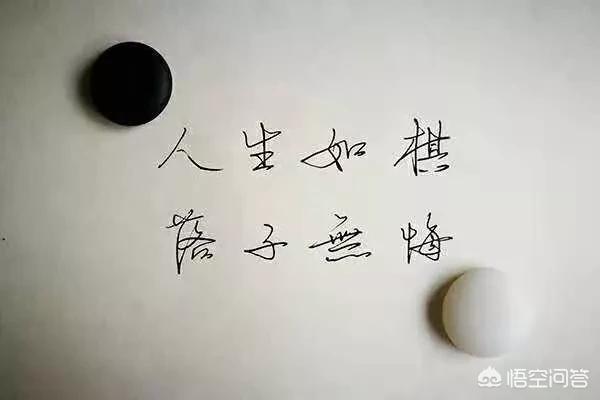 人生如棋
落子無悔
悟空问答